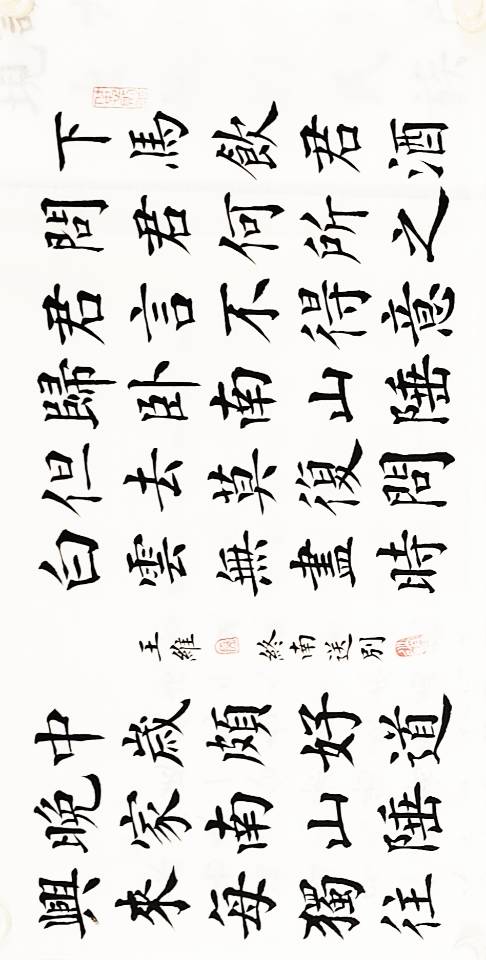 下馬飲君酒
問君何所之
君言不得意
歸臥南山陲
但去莫復問
白雲無盡時
王維 終南送別
中歲頗好道
晚家南山陲
興來每獨往